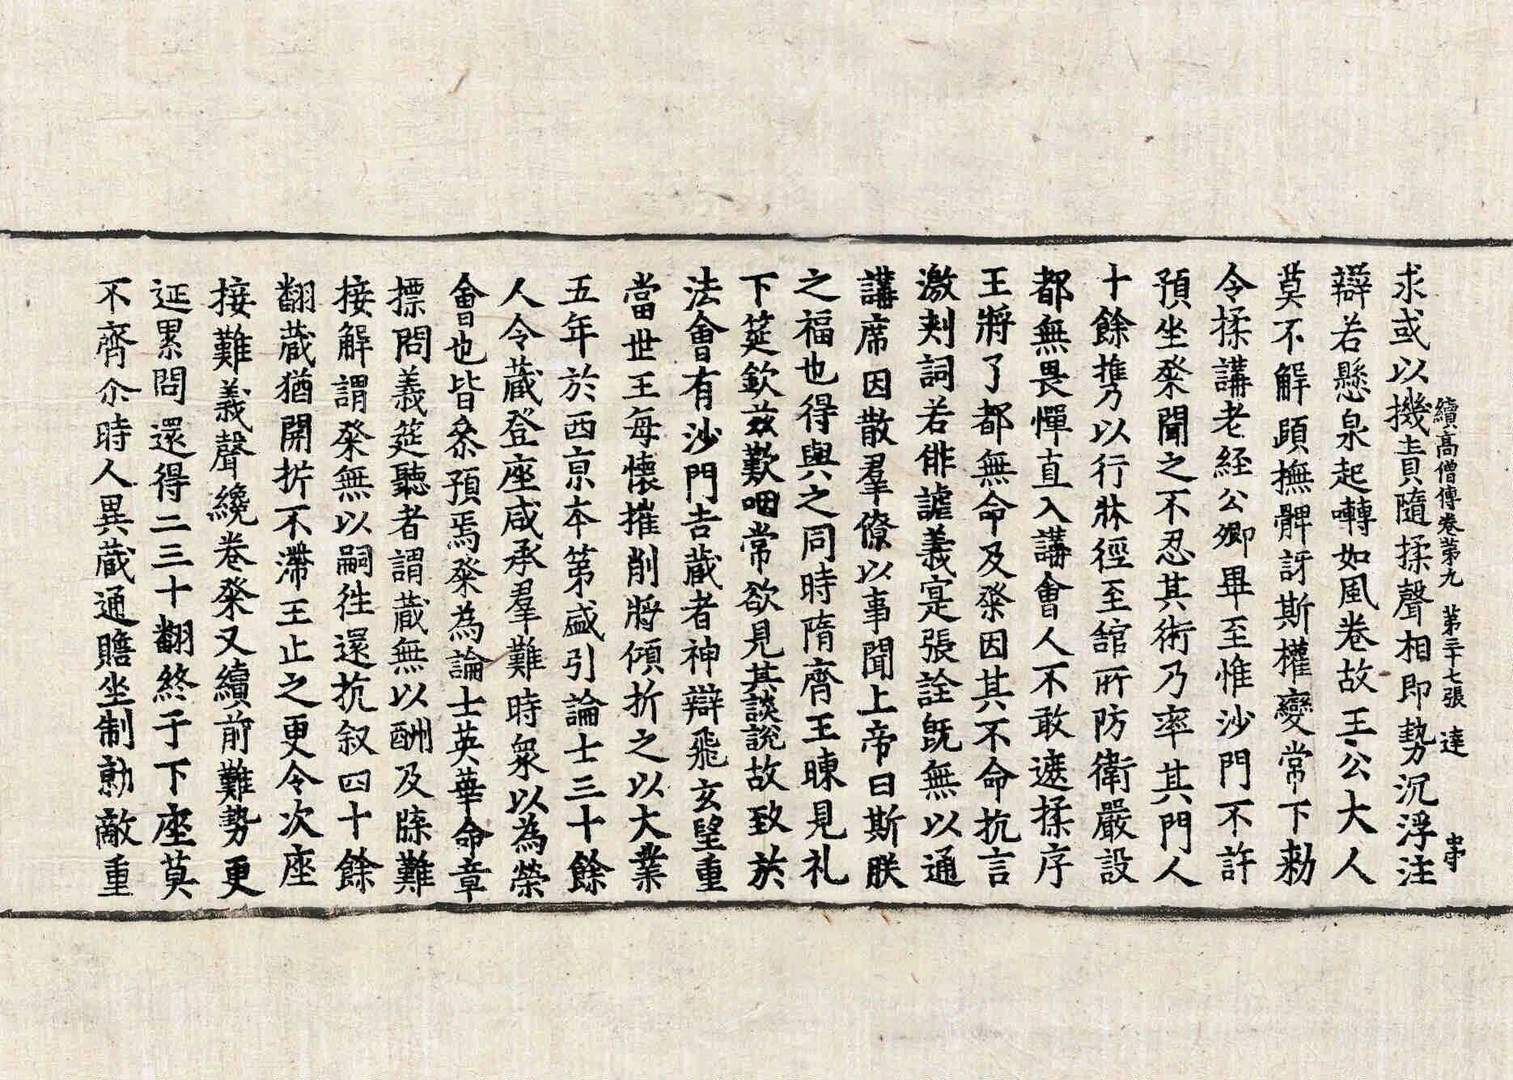 續高僧傳卷第九　第二十七張　達
求或以機責隨揉聲相即勢沉浮注
辯若懸泉起囀如風卷故王公大人
莫不解頤撫髀訝斯權變常下勑
令揉講老經公卿畢至惟沙門不許
預坐粲聞之不忍其術乃率其門人
十餘携以行牀徑至舘所防衛嚴設
都無畏憚直入講會人不敢遮揉序
王將了都無命及粲因其不命抗言
激刾詞若俳謔義寔張詮旣無以通
講席因散羣僚以事聞上帝曰斯朕
之福也得與之同時隋齊王暕見礼
下筵欽兹歎咽常欲見其談說故致於
法會有沙門吉蔵者神辯飛玄望重
當世王每懷摧削將傾折之以大業
五年於西京本第盛引論士三十餘
人令蔵登座咸承羣難時衆以為榮
會也皆叅預焉粲為論士英華命章
摽問義筵聽者謂蔵無以酬及牒難
接解謂粲無以嗣徃還抗叙四十餘
翻蔵猶開折不滯王止之更令次座
接難義聲纔卷粲又續前難勢更
延累問還得二三十翻終于下座莫
不齊尒時人異蔵通贍坐制勍敵重